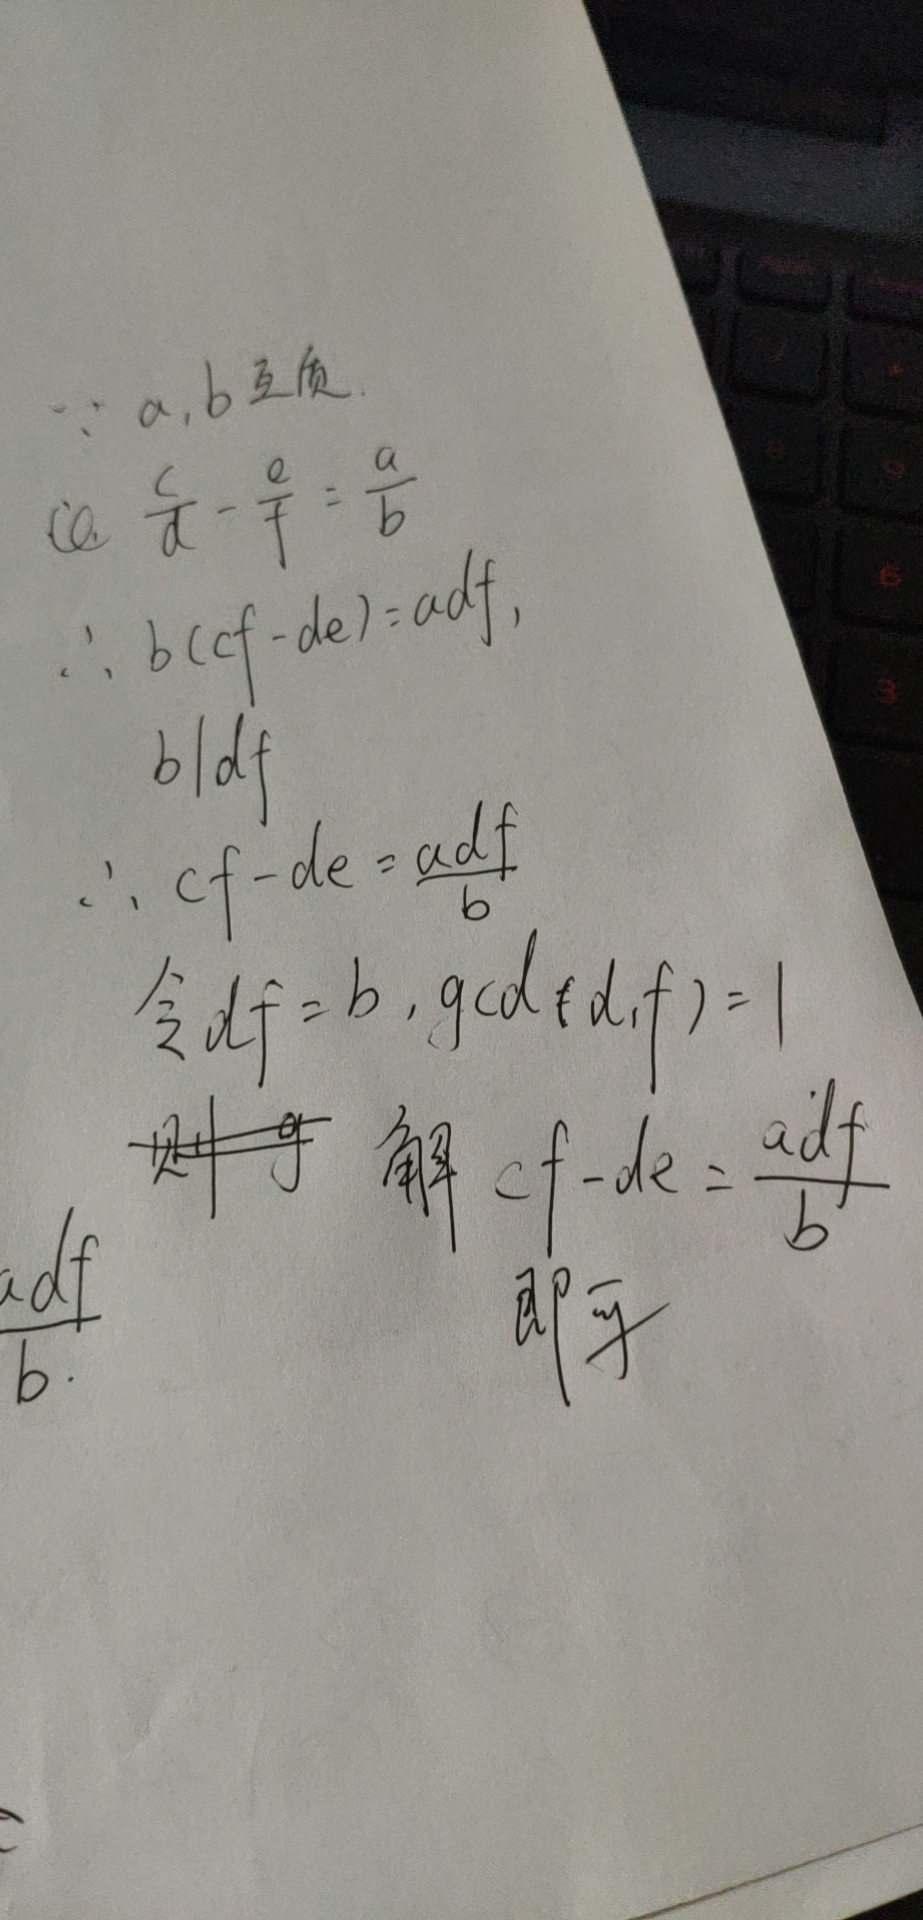 ∵ a,b互质.
c/d - e/f = a/b
∴ b(cf-de)=adf,
b|df
∴ cf-de = adf/b
令df=b, gcd(d,f)=1
解 cf-de = adf/b
即可
adf/b.